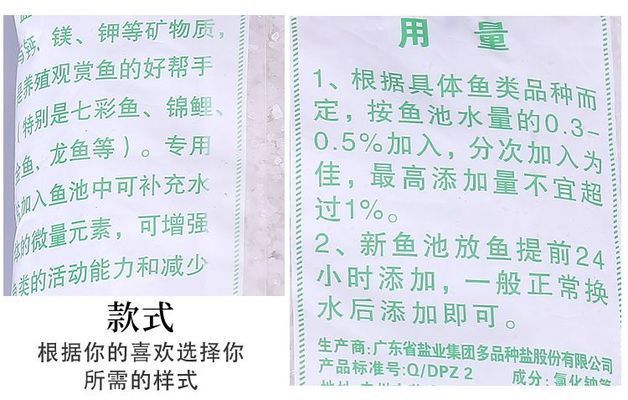 钙、镁、钾等矿物质，
是养殖观赏鱼的好帮手
（特别是七彩鱼、锦鲤、
金鱼、龙鱼等）。专用
加入鱼池中可补充水
的微量元素，可增强
鱼类的活动能力和减少
款式
根据你的喜欢选择你
所需的样式
用量
1、根据具体鱼类品种而
定，按鱼池水量的0.3-
0.5%加入，分次加入为
佳，最高添加量不宜超
过1%。
2、新鱼池放鱼提前24
小时添加，一般正常换
水后添加即可。
生产商：广东省盐业集团多品种盐股份有限公司
产品标准号：Q/DPZ 2 成分：氯化钠等